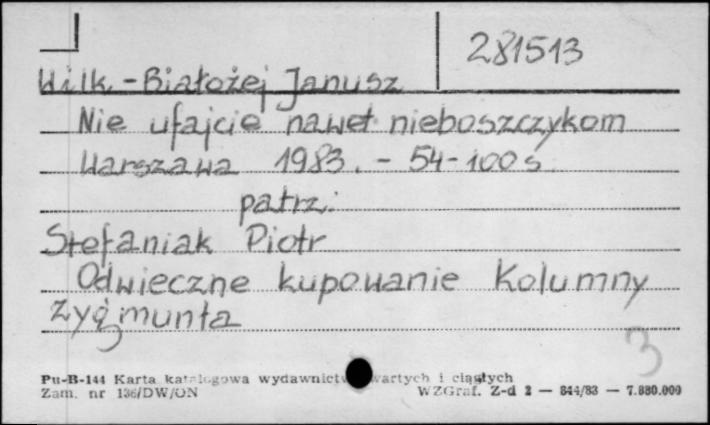 281513
Wilk-Białożej Janusz
Nie ufajcie nawet nieboszczykom
Warszawa 1983. - 54-100 s
patrz:
Stefaniak Piotr
Odwieczne kupowanie Kolumny
Zygmunta
3
Pu-B-144 Karta katalogowa wydawnictw zwartych i ciągłych
Zam. nr 136/DW/ON WZGraf. Z-d 2 — 844/83 — 7.880.000